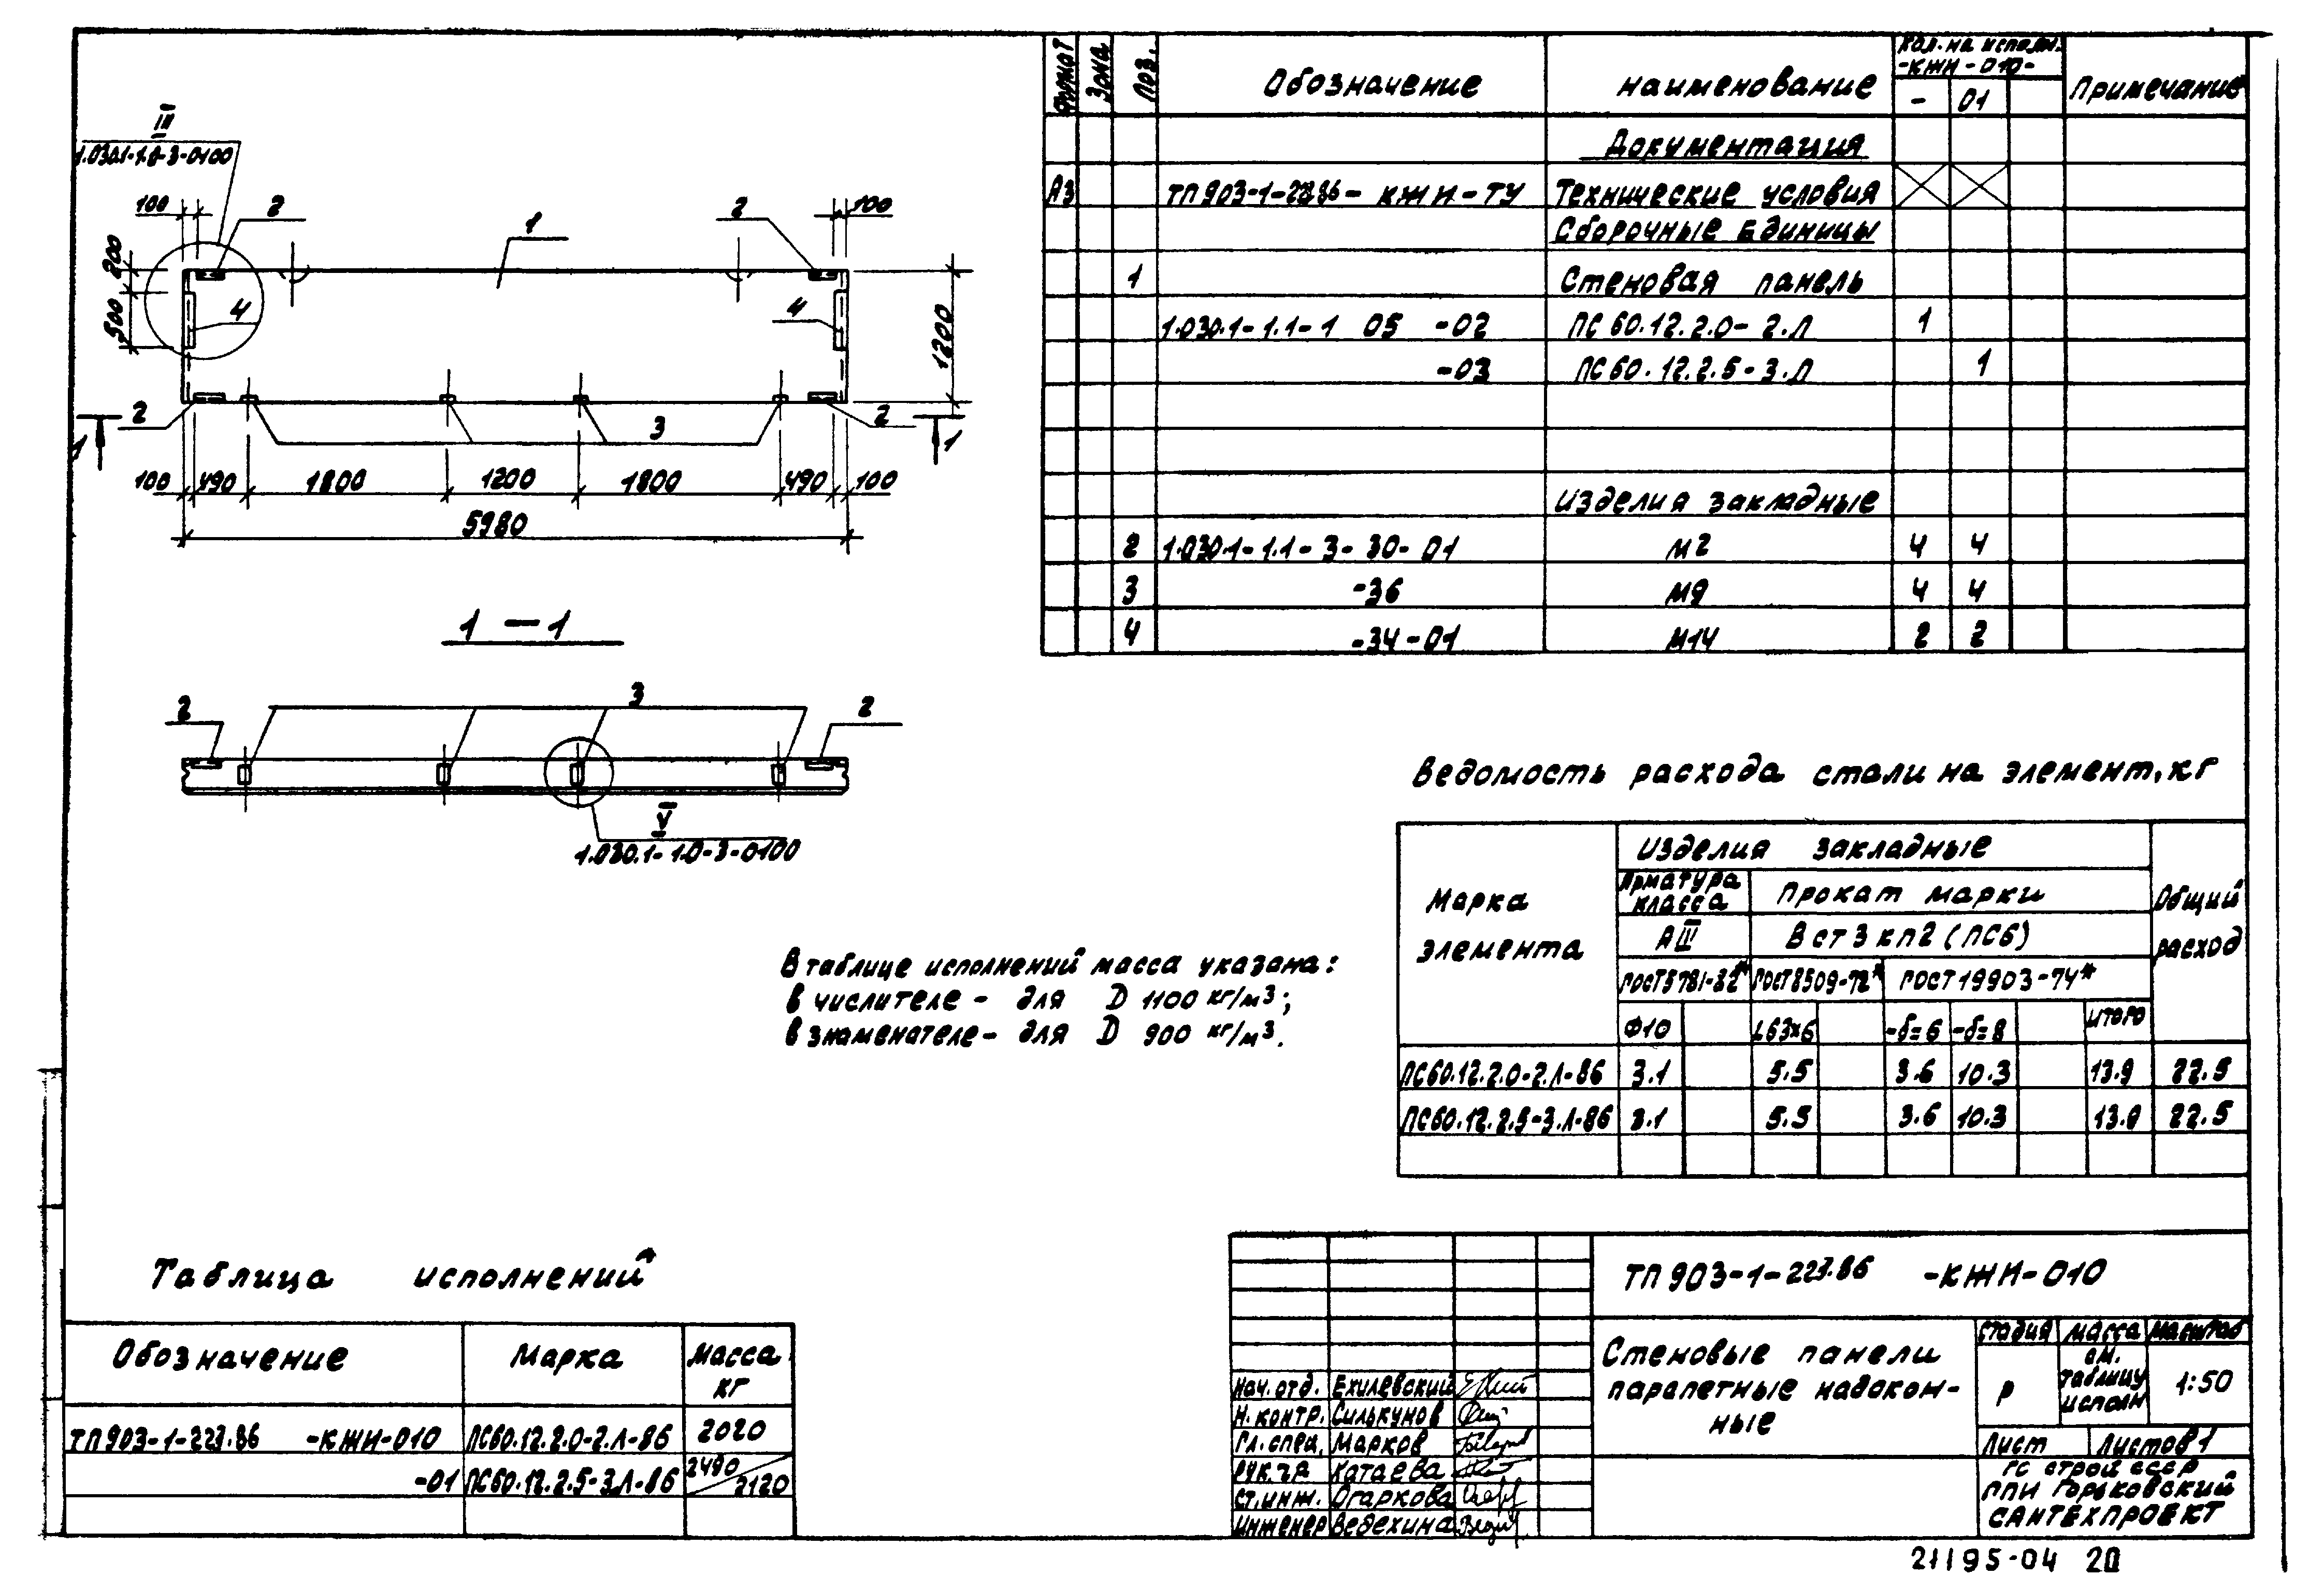 III
1.030.1-1.0-3-0100
100
2
1
2
100
200
500
4
4
1200
2
3
2
1
1
100 490 1800 1200 1800 490 100
5980
1 — 1
2
3
2
V
1.030.1-1.0-3-0100
В таблице исполнений масса указана:
в числителе - для D 1100 кг/м³;
в знаменателе - для D 900 кг/м³.
Формат Зона Поз. Обозначение Наименование Кол. на исполн. -КЖИ-010- Примечание
- 01
Документация
А3 ТП 903-1-223.86 - КЖИ-ТУ Технические условия
Сборочные единицы
1 Стеновая панель
1.030.1-1.1-1 05 -02 ПС 60.12.2.0-2.Л 1
-03 ПС 60.12.2.5-3.Л 1
Изделия закладные
2 1.030.1-1.1-3-30-01 М2 4 4
3 -36 М9 4 4
4 -34-01 М14 2 2
Ведомость расхода стали на элемент, кг
Марка элемента
Изделия закладные
Общий расход
Арматура класса
Прокат марки
АIII
В ст 3 кп2 (ПС6)
ГОСТ 5781-82* ГОСТ 8509-72* ГОСТ 19903-74*
Ф10 L63х6 -δ=6 -δ=8 Итого
ПС60.12.2.0-2.Л-86 3.1 5.5 3.6 10.3 13.9 22.5
ПС60.12.2.5-3.Л-86 3.1 5.5 3.6 10.3 13.9 22.5
Таблица исполнений
Обозначение Марка Масса кг
ТП 903-1-223.86 -КЖИ-010 ПС60.12.2.0-2.Л-86 2020
-01 ПС60.12.2.5-3.Л-86 2490/2120
ТП 903-1-223.86 -КЖИ-010
Стеновые панели
парапетные надокон-
ные
Стадия Масса Масштаб
Р см. таблицу исполн 1:50
Лист Листов 1
Нач. отд. Ехилевский
Н. контр. Силькунов
Гл. спец. Марков
Рук. гр. Катаева
Ст. инж. Огаркова
Инженер Ведехина
ГС строй СССР
ГПИ Горьковский
САНТЕХПРОЕКТ
21195-04 20